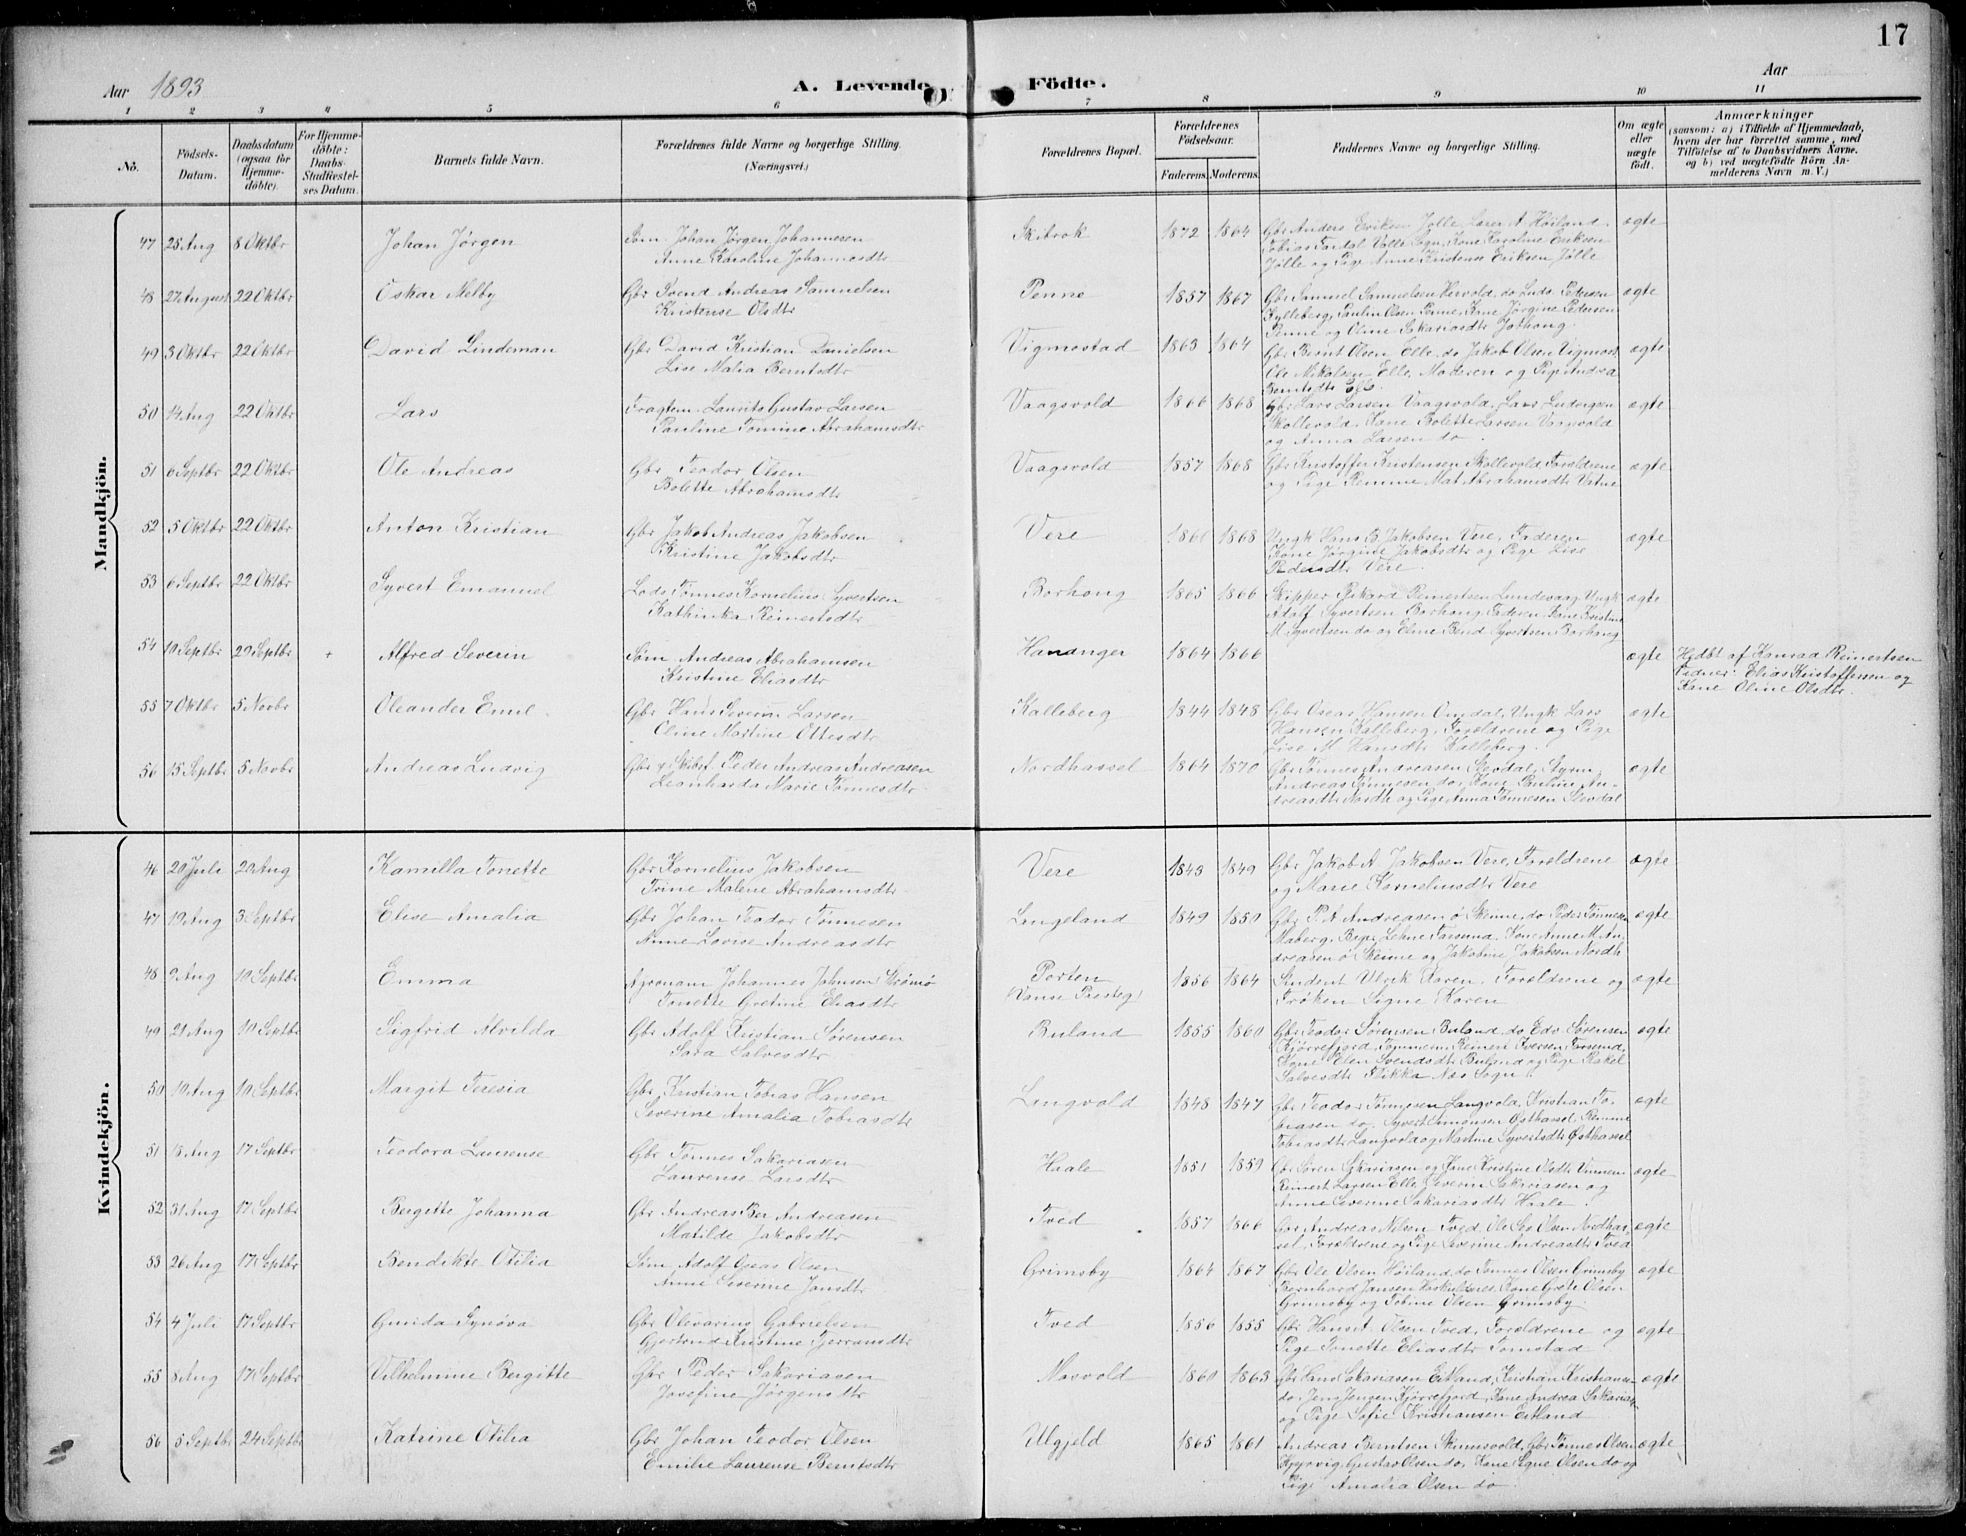 17
Aar 1893
A. Levende Födte.
Aar
1 2 3 4 5 6 7 8 9 10 11
No.
Födsels-Datum.
Daabsdatum (ogsaa for Hjemme-döbte).
For Hjemme-döbte: Daabs-Stadfæstel-ses Datum.
Barnets fulde Navn.
Forældrenes fulde Navne og borgerlige Stilling. (Næringsvei.)
Forældrenes Bopæl.
Forældrenes Födselsaar.
Faderens. Moderens.
Faddernes Navne og borgerlige Stilling.
Om ægte eller uægte födt.
Anmærkninger
(saasom: a) i Tilfælde af Hjemmedaab, hvem der har forrettet samme, med Tilföielse af to Daabsvidners Navne. og b) ved uægtefödte Börn An-melderens Navn m. V.)
Mandkjön.
47 28 Aug 8 Oktbr Johan Jørgen Søm. Johan Jørgen Johannesen Skibrok 1872 1864 Gbr Anders Eriksen Jølle, Lars A. Høiland ægte
Anne Karoline Johannesdtr Kone Karoline Eriksen
Jølle og Pige Anne Kristense Eriksen Jølle
48 27 August 22 Oktbr Oskar Melby Gbr Svend Andreas Samuelsen Penne 1857 1867 Gbr Samuel Samuelsen ægte
Kristense Olsdtr Paulin Olsen Penne, Kone Jørgine Pedersen
Penne og Oline Sakariasdtr
49 3 Oktbr 22 Oktbr David Lindeman Gbr David Kristian Danielsen Vigmostad 1863 1864 Gbr Bernt Olsen Elle, do Jakob Olsen Vigmost ægte
Lise Malia Berntsdtr Ole Mikalsen Elle, Moderen og Pige Andrea
Berntsdtr Elle.
50 14 Aug 22 Oktbr Lars Laurits Gustav Larsen Vaagsvold 1866 1868 Gbr Lars Larsen Vaagsvold, ægte
Pauline Tomine Abrahamsdtr Skollevold, Kone Bolette Larsen Vaagsvold
og Anna Larsen do.
51 6 Septbr 22 Oktbr Ole Andreas Gbr Teodor Olsen Vaagsvold 1857 1868 Gbr Kristoffer Kristensen Skollevold, Forældrene ægte
Bolette Abrahamsdtr og Pige Abrahamsdtr Vatne
52 5 Oktbr 22 Oktbr Anton Kristian Gbr Jakob Andreas Jakobsen Vere 1868 Ungk Hans B. Jakobsen Vere, Faderen ægte
Kristine Jakobsdtr Kone Jørgine Jakobsdtr og Pige Lise
Pedersdtr Vere.
53 6 Septbr 22 Oktbr Syvert Emanuel Lods Tønnes Kornelius Syvertsen Borhaug 1865 1866 Skipper Rikard Reinertsen Lundevaag, Ungk ægte
Kathinka Reinertsdtr Adolf Syvertsen Borhaug, Faderen, Kone Kristine
M. Syvertsen do og Syvertsen Borhaug
54 10 Septbr 29 Septbr + Alfred Severin Søm. Andreas Abrahamsen Hananger 1864 1866 ægte Hjdbt af Konrad Reinertsen
Kristine Eliasdtr Vidner: Elias Kristoffersen og
Kone Oline Olsdtr.
55 7 Oktbr 5 Novbr Oleander Emil Gbr Hans Severin Larsen Kalleberg 1844 1848 Gbr Oscar Hansen Omdal, Ungk Lars ægte
Oline Martine Ottesdtr Hansen Kalleberg, Forældrene og Pige
Lise M. Hansdtr Kalleberg.
56 15 Septbr 5 Novbr Andreas Ludvig Gbr Peder Andreas Andreasen Nordhassel 1864 1870 Gbr Tønnes Andreasen ægte
Leonharda Marie Tønnesdtr Andreas Tønnesen do, Kone Pauline An-
dreasdtr Nordh og Pige Anna Tønnesen
Kvindekjön.
46 20 Juli 20 Aug Kamilla Tonette Gbr Kornelius Jakobsen Vere 1843 1849 Gbr Jakob A. Jakobsen Vere, Forældrene ægte
Trine Malene Abrahamsdtr og Marie Korneliusdtr Vere
47 19 Aug 3 Septbr Elise Amalia Gbr Johan Teodor Tønnesen Langeland 1849 1850 Gbr P. A. Andreasen ø Skeime, do Peder Tønnesen ægte
Anne Lovise Andreasdtr Farsund, Kone Anne M. An-
dreasen ø Skeime og Jakobine Jakobsen Nordh
48 9 Aug 10 Septbr Emma Agronom Johannes Johnsen Strømø Porten 1856 1864 Student Ulrik Koren, Forældrene og ægte
Tonette Gretine Eliasdtr (Vanse Presteg) Frøken Signe Koren
49 21 Aug 10 Septbr Sigfrid Alvilda Gbr Adolf Kristian Sørensen Buland 1855 1860 Gbr Teodor Sørensen Buland, do Edv Sørensen ægte
Sara Salvesdtr Kjørrefjord, Iversen Farsund,
Kone Elen Svendsdtr Buland og Pige Rakel
Salvesdtr Flikka Næs Sogn.
50 10 Aug 10 Septbr Margit Teresia Gbr Kristian Tobias Hansen Langvold 1848 1847 Gbr Teodor Tønnesen Langvold, Kristian To- ægte
Severine Amalia Tobiasdtr biasen do, Syvert Simonsen Østhassel,
Tobiasdtr Langvold og Martine Syvertsdtr Østhassel
51 18 Aug 17 Septbr Teodora Laurense Gbr Tønnes Sakariasen Haale 1851 1859 Gbr Søren Sakariasen og Kone Kristine Olsdtr ægte
Laurense Larsdtr Reinert Larsen Elle, Severin Sakariasen og
Anne Severine Sakariasdtr Haale.
52 31 Aug 17 Septbr Bergitte Johanna Gbr Andreas Ber Andreasen Tved 1857 1866 Gbr Andreas Nilsen Tved, Olsen Nordhas- ægte
Matilde Jakobsdtr sel, Forældrene og Pige Severine Andreasdtr Tved
53 26 Aug 17 Septbr Bendikte Otilia Søm. Adolf Olsen Grimsby 1864 1867 Gbr Ole Olsen Høiland, do Tønnes Olsen Grimsby ægte
Anne Severine Jansdtr Bernhard Jansen Kone Grete Olsen
Grimsby og Tobine Olsen Grimsby.
54 4 Juli 17 Septbr Gunda Synøva Gbr Olevarius Gabrielsen Tved 1856 1855 Gbr Olsen Tved, Forældrene og ægte
Gjertrud Kristine Pige Tonette Eliasdtr Tomstad
55 8 Aug 17 Septbr Vilhelmine Bergitte Gbr Peder Sakariasen Mosvold 1860 1863 Gbr Hans Sakariasen Eitland, Kristian Kristiansen ægte
Josefine Jørgensdtr do, Jens Jensen Kjørrefjord, Kone Andrea Sakarias
og Pige Sofie Kristiansen Eitland
56 5 Septbr 24 Septbr Katrine Otilia Gbr Johan Teodor Olsen Ulgjeld 1865 1861 Andreas Berntsen Skeimsvold, Gbr Tønnes Olsen ægte
Emilie Laurense Berntsdtr Gustav Olsen do, Kone Signe Olsen do og
Pige Amalia Olsen do.